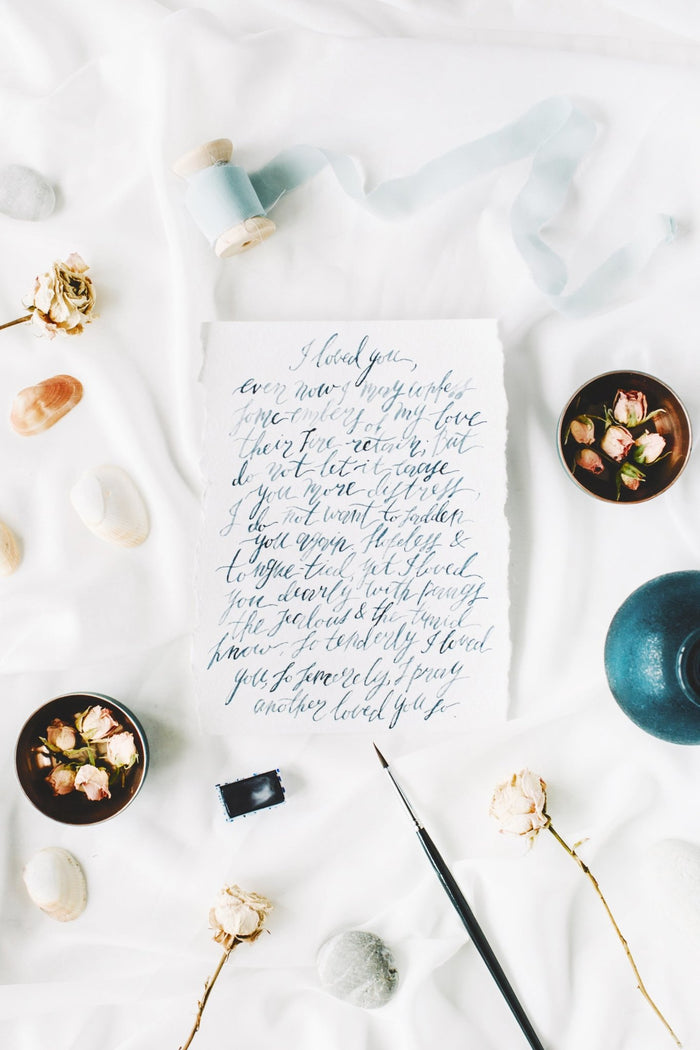 I loved you,
even now I may confess
some embers of my love
their fire retain; But
do not let it cause
you more distress,
I do not want to sadden
you again, Hopeless &
tongue-tied, yet I loved
you dearly with pangs
the jealous & the timid
know. So tenderly I loved
you, so sincerely, I pray
another loved you so